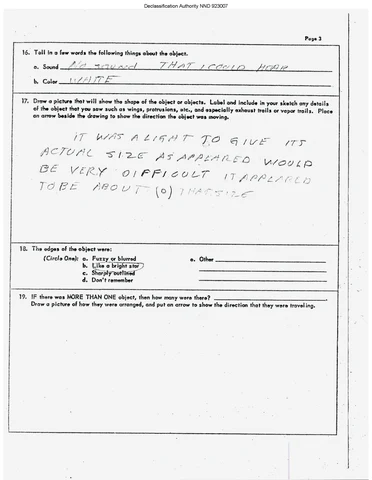 Declassification Authority NND 923007
Page 3
16. Tell in a few words the following things about the object.
a. Sound NO SOUND THAT I COULD HEAR
b. Color WHITE
17. Draw a picture that will show the shape of the object or objects. Label and include in your sketch any details
of the object that you saw such as wings, protrusions, etc., and especially exhaust trails or vapor trails. Place
an arrow beside the drawing to show the direction the object was moving.
IT WAS A LIGHT TO GIVE ITS
ACTUAL SIZE AS APPEARED WOULD
BE VERY DIFFICULT IT APPEARED
TO BE ABOUT (O) THAT SIZE
18. The edges of the object were:
(Circle One): a. Fuzzy or blurred e. Other
b. Like a bright star
c. Sharply outlined
d. Don't remember
19. IF there was MORE THAN ONE object, then how many were there?
Draw a picture of how they were arranged, and put an arrow to show the direction that they were traveling.